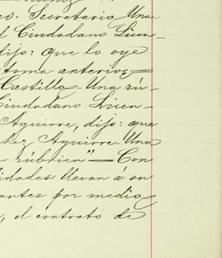 co. Secretario Una
l Ciudadano Licen-
dijo: que lo oye
toma anterior—
Castillo. Una rú-
Ciudadano Licen-
Aguirre, dijo: que
Aguirre Una
rúbrica"— Con
idades llevan á su
antes por medio
, el contrato de